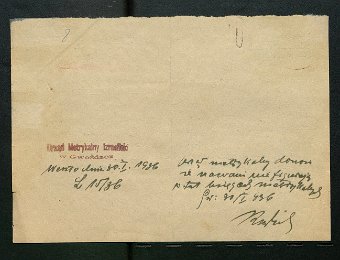 Urząd Metrykalny Izraelicki
w Gwoźdźcu
Weszło dnia 30/I. 1936
L 15/36
Urząd metrykalny donosi
że nazwani nie figurują
w tut księgach metrykalnych
31/I 936